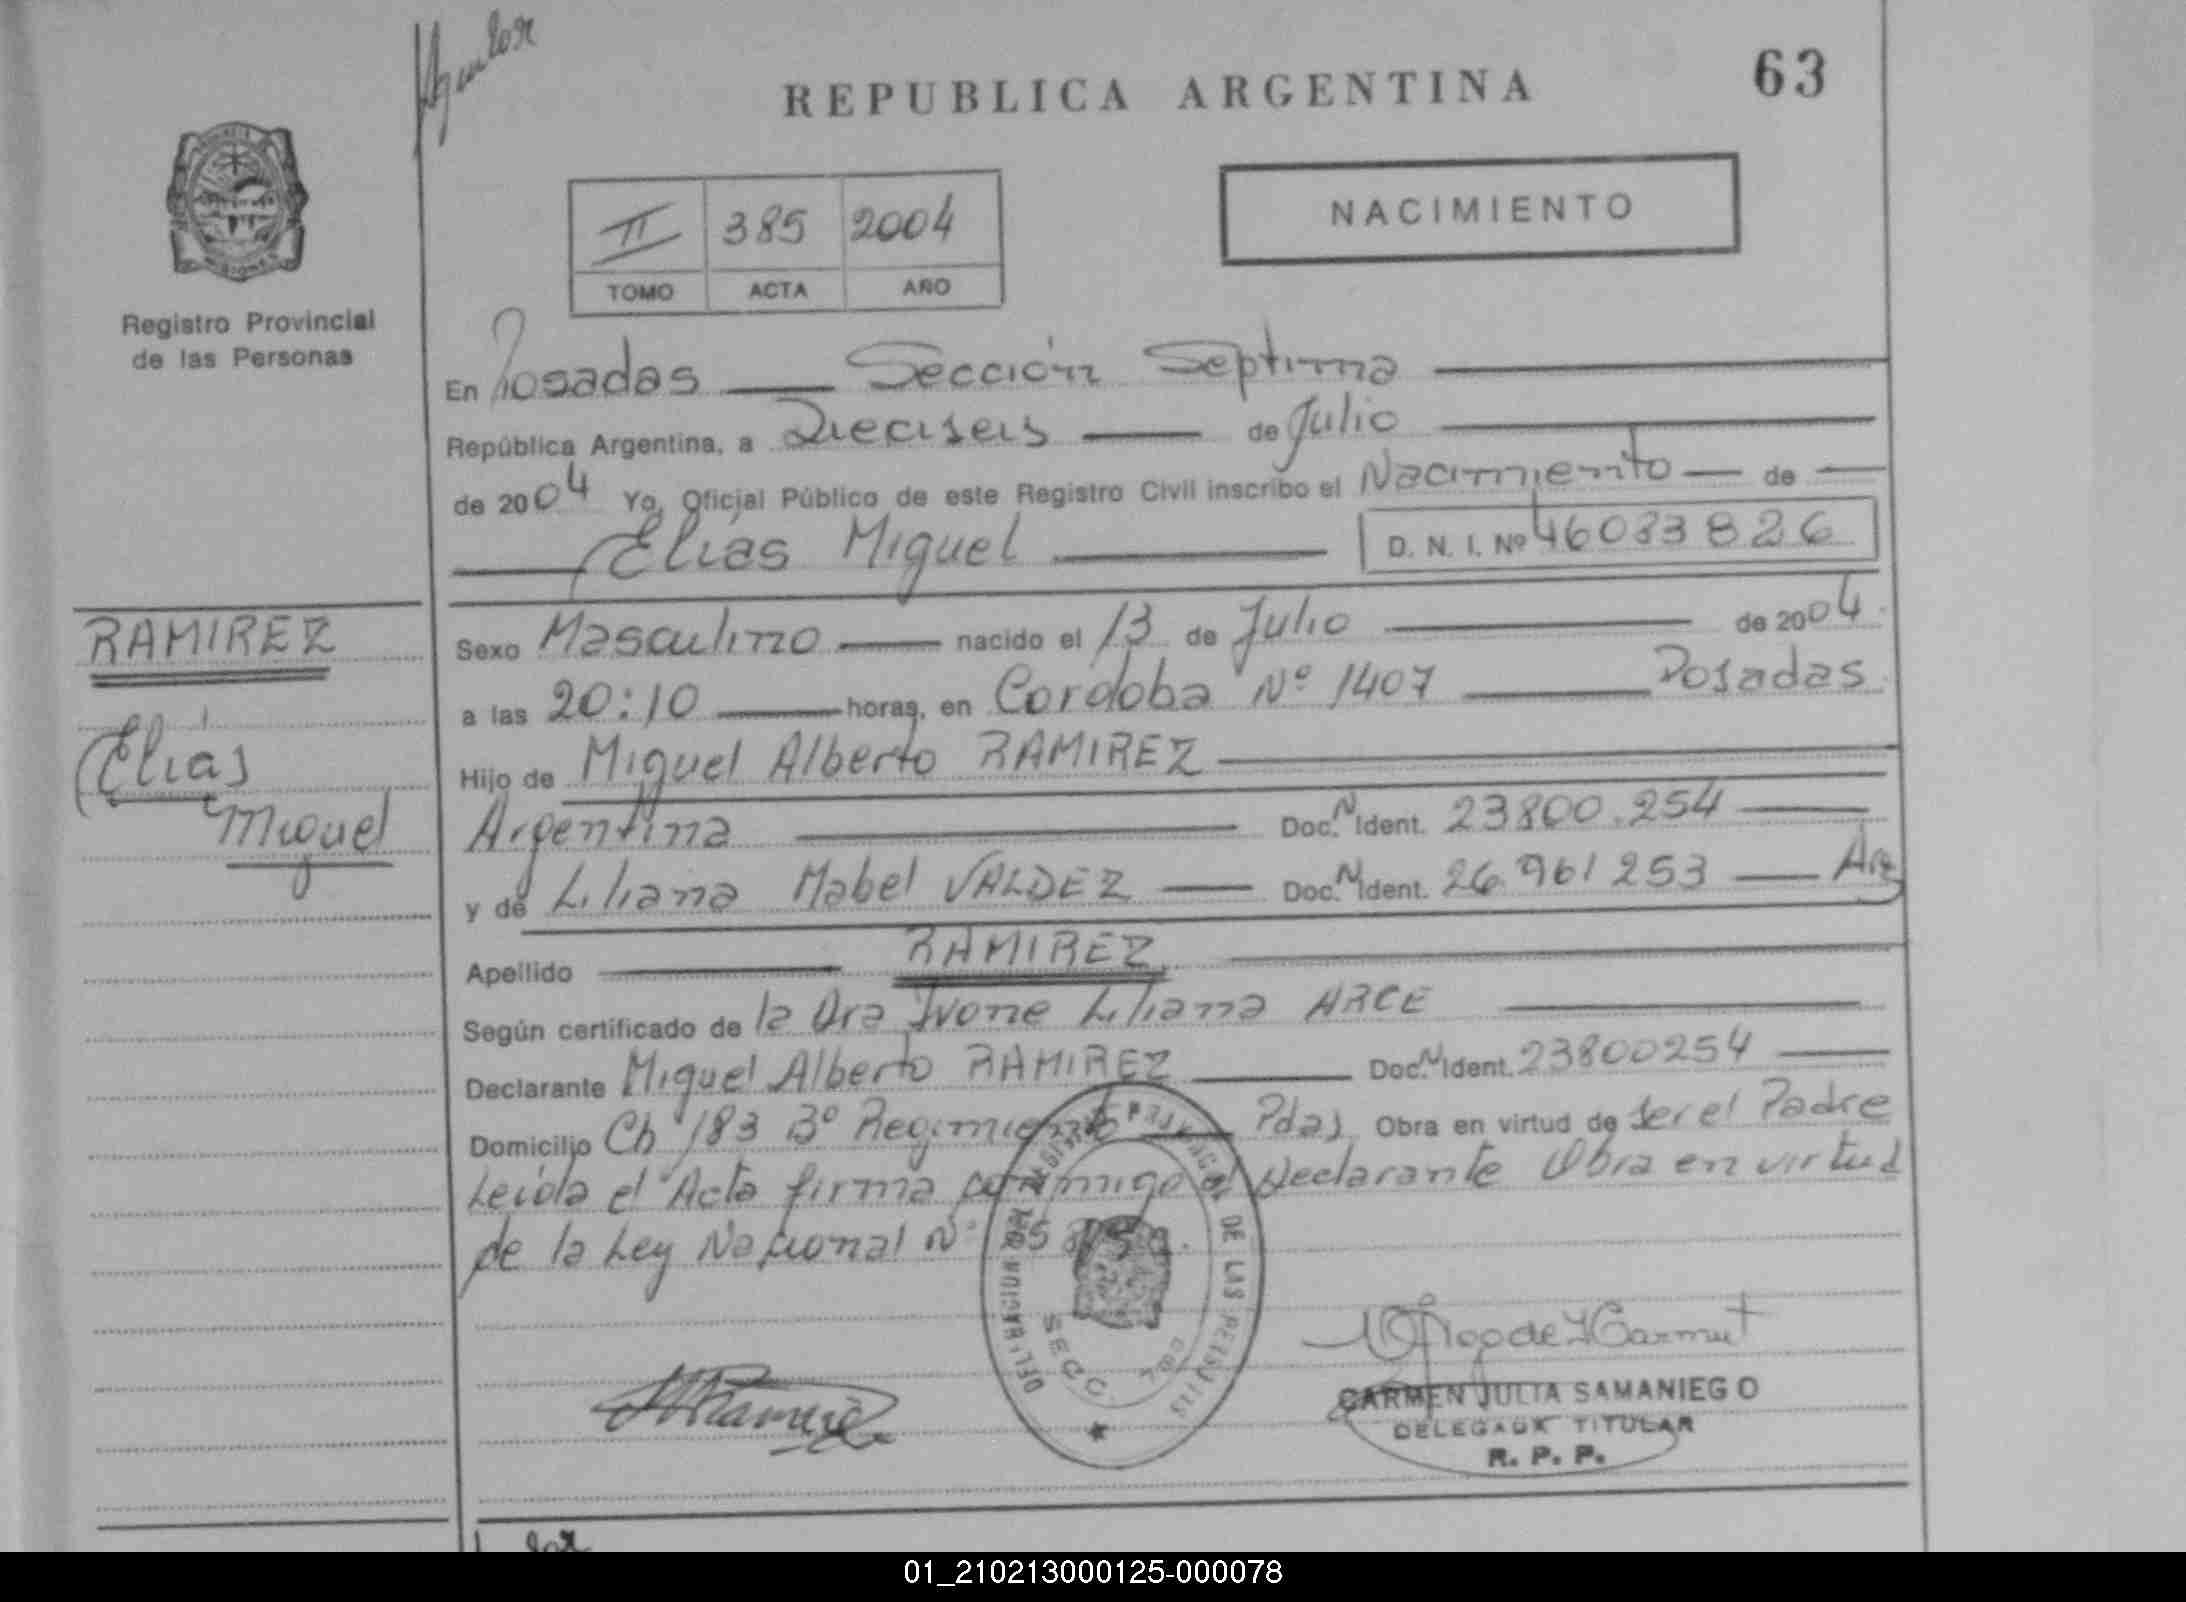 Aguilar
REPUBLICA ARGENTINA
63
II 385 2004
TOMO ACTA AÑO
NACIMIENTO
Registro Provincial
de las Personas
En Posadas Sección Septima
República Argentina, a Dieciseis de Julio
de 2004 Yo, Oficial Público de este Registro Civil inscribo el Nacimiento de
Elías Miguel D. N. I. Nº 46083826
RAMIREZ
Elías
Miguel
Sexo Masculino nacido el 13 de Julio de 2004
a las 20:10 horas, en Cordoba Nº 1407 Posadas
Hijo de Miguel Alberto RAMIREZ
Argentina Doc. N Ident. 23800.254
y de Liliana Mabel VALDEZ Doc. N Ident. 26.961253 Arg
Apellido RAMIREZ
Según certificado de la Dra Ivone Liliana ARCE
Declarante Miguel Alberto RAMIREZ Doc. N Ident. 23800254
Domicilio Ch 183 Bº Regimiento Pdas Obra en virtud de ser el Padre
Leída el Acta firma conmigo el Declarante Obra en virtud
de la Ley Nacional Nº
DE LAS
SECC.
CARMEN JULIA SAMANIEGO
DELEGADA TITULAR
R. P. P.
01_210213000125-000078